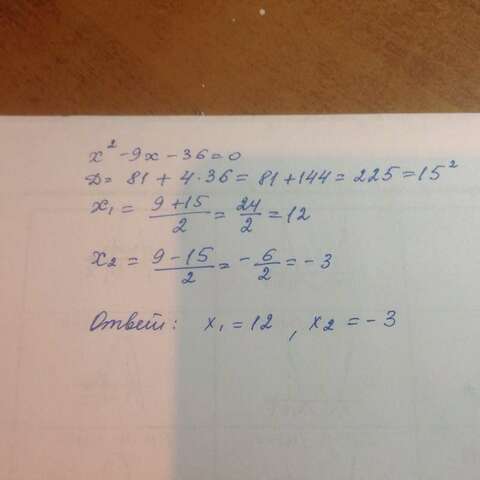 x² - 9x - 36 = 0
D = 81 + 4 · 36 = 81 + 144 = 225 = 15²
x₁ = (9 + 15)/2 = 24/2 = 12
x₂ = (9 - 15)/2 = - 6/2 = - 3
Ответ: x₁ = 12 , x₂ = - 3